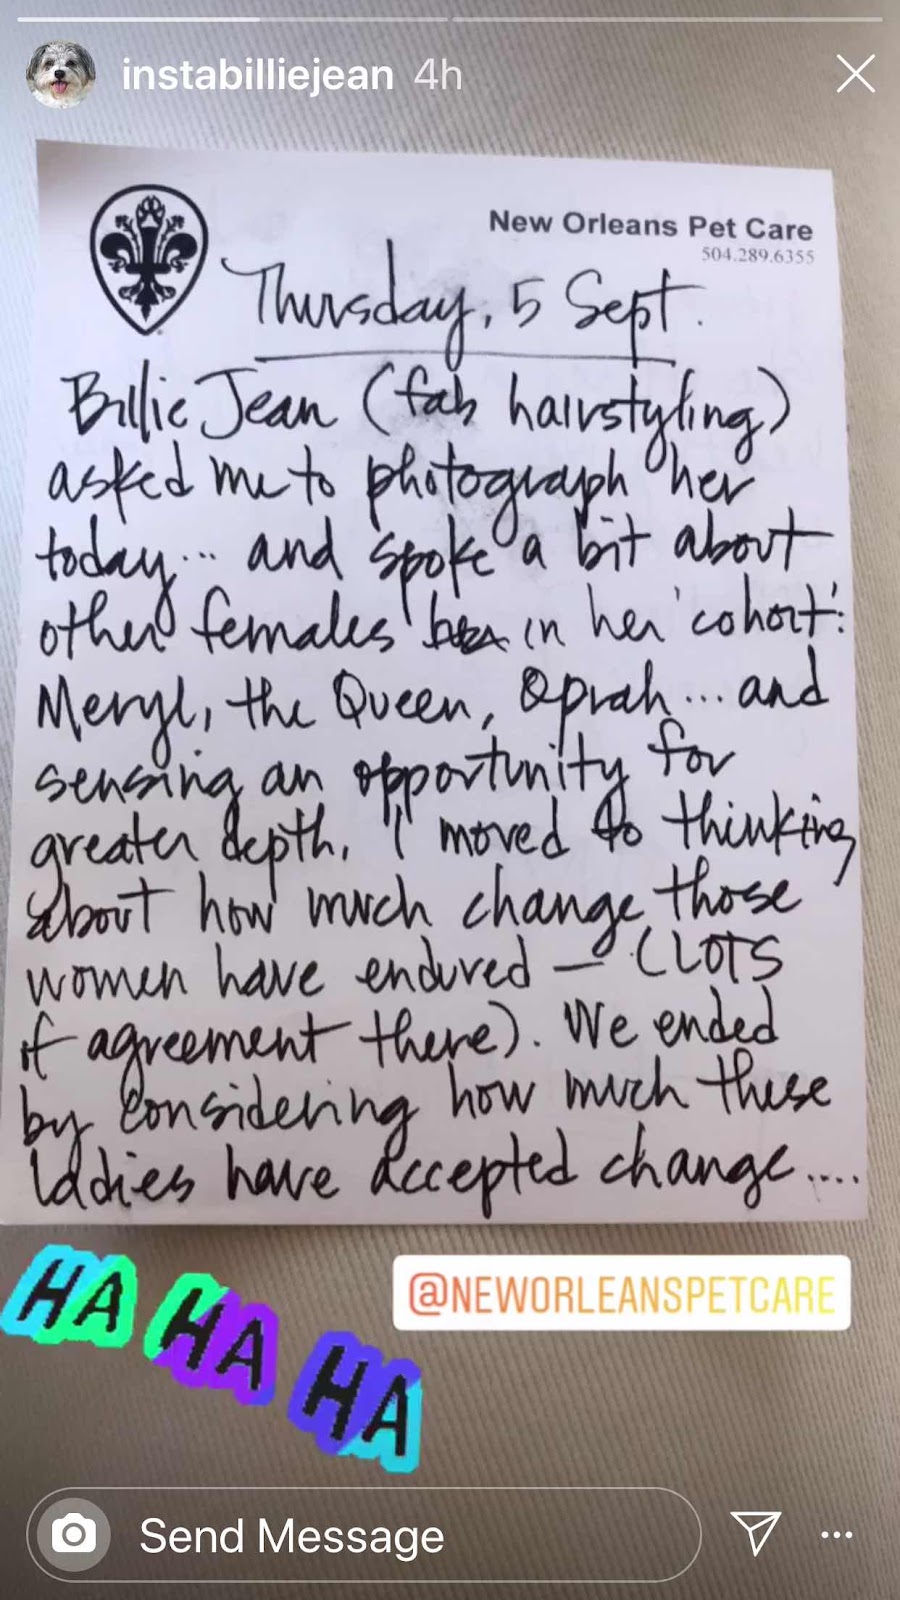 instabilliejean 4h
New Orleans Pet Care
504.289.6355
Thursday, 5 Sept.
Billie Jean (fab hairstyling)
asked me to photograph her
today... and spoke a bit about
other females in her 'cohort':
Meryl, the Queen, Oprah... and
sensing an opportunity for
greater depth, I moved to thinking
about how much change those
women have endured — (LOTS
of agreement there). We ended
by considering how much these
ladies have accepted change....
HA HA HA
@NEWORLEANSPETCARE
Send Message